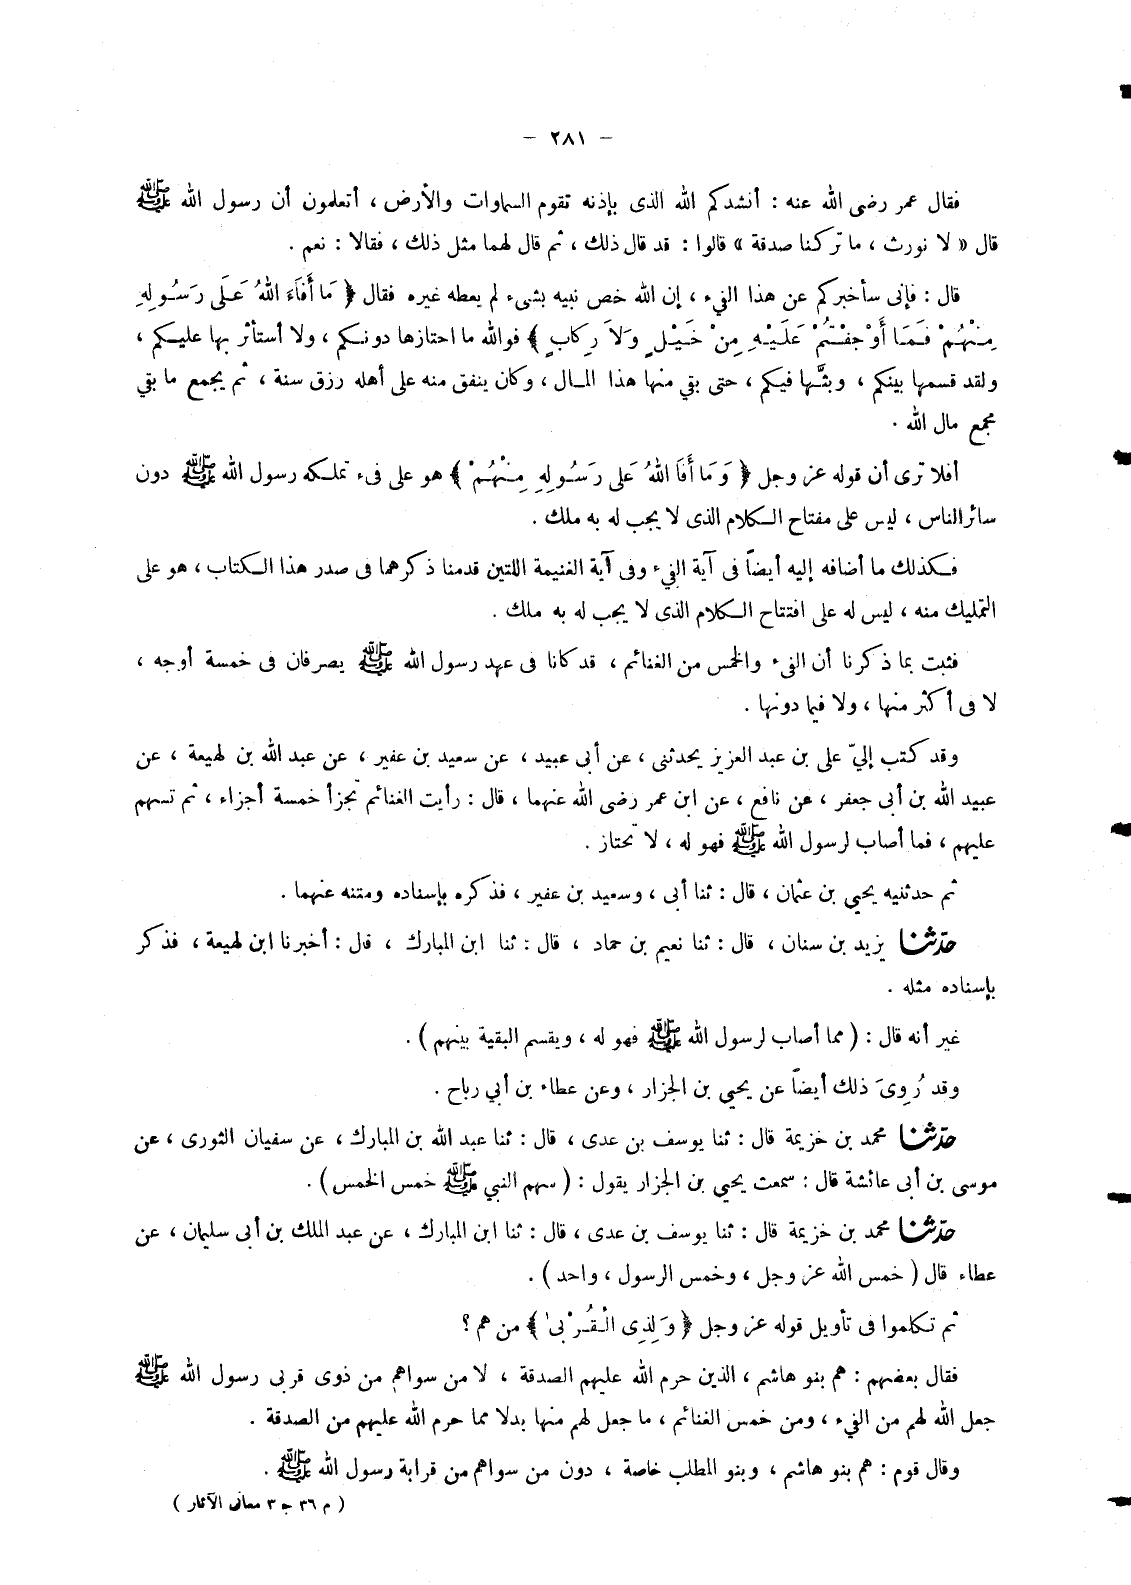 – ٢٨١ –
فقال عمر رضى الله عنه : أنشدكم الله الذى بإذنه تقوم السماوات والأرض ، أتعلمون أن رسول الله ﷺ
قال « لا نورث ، ما تركنا صدقة » قالوا : قد قال ذلك ، ثم قال لهما مثل ذلك ، فقالا : نعم .
قال : فإنى سأخبركم عن هذا الفىء ، إن الله خص نبيه بشىء لم يعطه غيره فقال ﴿ مَا أَفَاءَ اللهُ عَلَى رَسُولِهِ
مِنْهُمْ فَمَا أَوْجَفْتُمْ عَلَيْهِ مِنْ خَيْلٍ وَلاَ رِكابٍ ﴾ فوالله ما احتازها دونكم ، ولا أستأثر بها عليكم ،
ولقد قسمها بينكم ، وبثَّها فيكم ، حتى بقي منها هذا المال ، وكان ينفق منه على أهله رزق سنة ، ثم يجمع ما بقي
مجمع مال الله .
أفلا ترى أن قوله عز وجل ﴿ وَمَا أَفَاَ اللهُ عَلى رَسُولِهِ مِنْهُمْ ﴾ هو على فىء تملكه رسول الله ﷺ دون
سائر الناس ، ليس على مفتاح الكلام الذى لا يجب له به ملك .
فكذلك ما أضافه إليه أيضاً فى آية الفىء وفى آية الغنيمة اللتين قدمنا ذكرهما فى صدر هذا الكتاب ، هو على
التمليك منه ، ليس له على افتتاح الكلام الذى لا يجب له به ملك .
فثبت بما ذكرنا أن الفىء والخمس من الغنائم ، قد كانا فى عهد رسول الله ﷺ يصرفان فى خمسة أوجه ،
لا فى أكثر منها ، ولا فيما دونها .
وقد كتب إليّ على بن عبد العزيز يحدثنى ، عن أبى عبيد ، عن سعيد بن عفير ، عن عبد الله بن لهيعة ، عن
عبيد الله بن أبى جعفر ، عن نافع ، عن ابن عمر رضى الله عنهما ، قال : رأيت الغنائم تجزأ خمسة أجزاء ، ثم تسهم
عليهم ، فما أصاب لرسول الله ﷺ فهو له ، لا تحتاز .
ثم حدثنيه يحيي بن عثمان ، قال : ثنا أبى ، وسعيد بن عفير ، فذكره بإسناده ومتنه عنهما .
حدّثنا يزيد بن سنان ، قال : ثنا نعيم بن حماد ، قال : ثنا ابن المبارك ، قال : أخبرنا ابن لهيعة ، فذكر
بإسناده مثله .
غير أنه قال : ( مما أصاب لرسول الله ﷺ فهو له ، ويقسم البقية بينهم ) .
وقد رُوِىَ ذلك أيضاً عن يحيي بن الجزار ، وعن عطاء بن أبي رباح .
حدّثنا محمد بن خزيمة قال : ثنا يوسف بن عدى ، قال : ثنا عبد الله بن المبارك ، عن سفيان الثورى ، عن
موسى بن أبى عائشة قال : سمعت يحيي بن الجزار يقول : ( سهم النبي ﷺ خمس الخمس ) .
حدّثنا محمد بن خزيمة قال : ثنا يوسف بن عدى ، قال : ثنا ابن المبارك ، عن عبد الملك بن أبى سليمان ، عن
عطاء قال ( خمس الله عز وجل ، وخمس الرسول ، واحد ) .
ثم تكلموا فى تأويل قوله عز وجل ﴿ وَلِذِى الْقُرْبىٰ ﴾ من هم ؟
فقال بعضهم : هم بنو هاشم ، الذين حرم الله عليهم الصدقة ، لا من سواهم من ذوى قربى رسول الله ﷺ
جعل الله لهم من الفىء ، ومن خمس الغنائم ، ما جعل لهم منها بدلا مما حرم الله عليهم من الصدقة .
وقال قوم : هم بنو هاشم ، وبنو المطلب خاصة ، دون من سواهم من قرابة رسول الله ﷺ .
( م ٣٦ ج ٣ معانى الآثار )